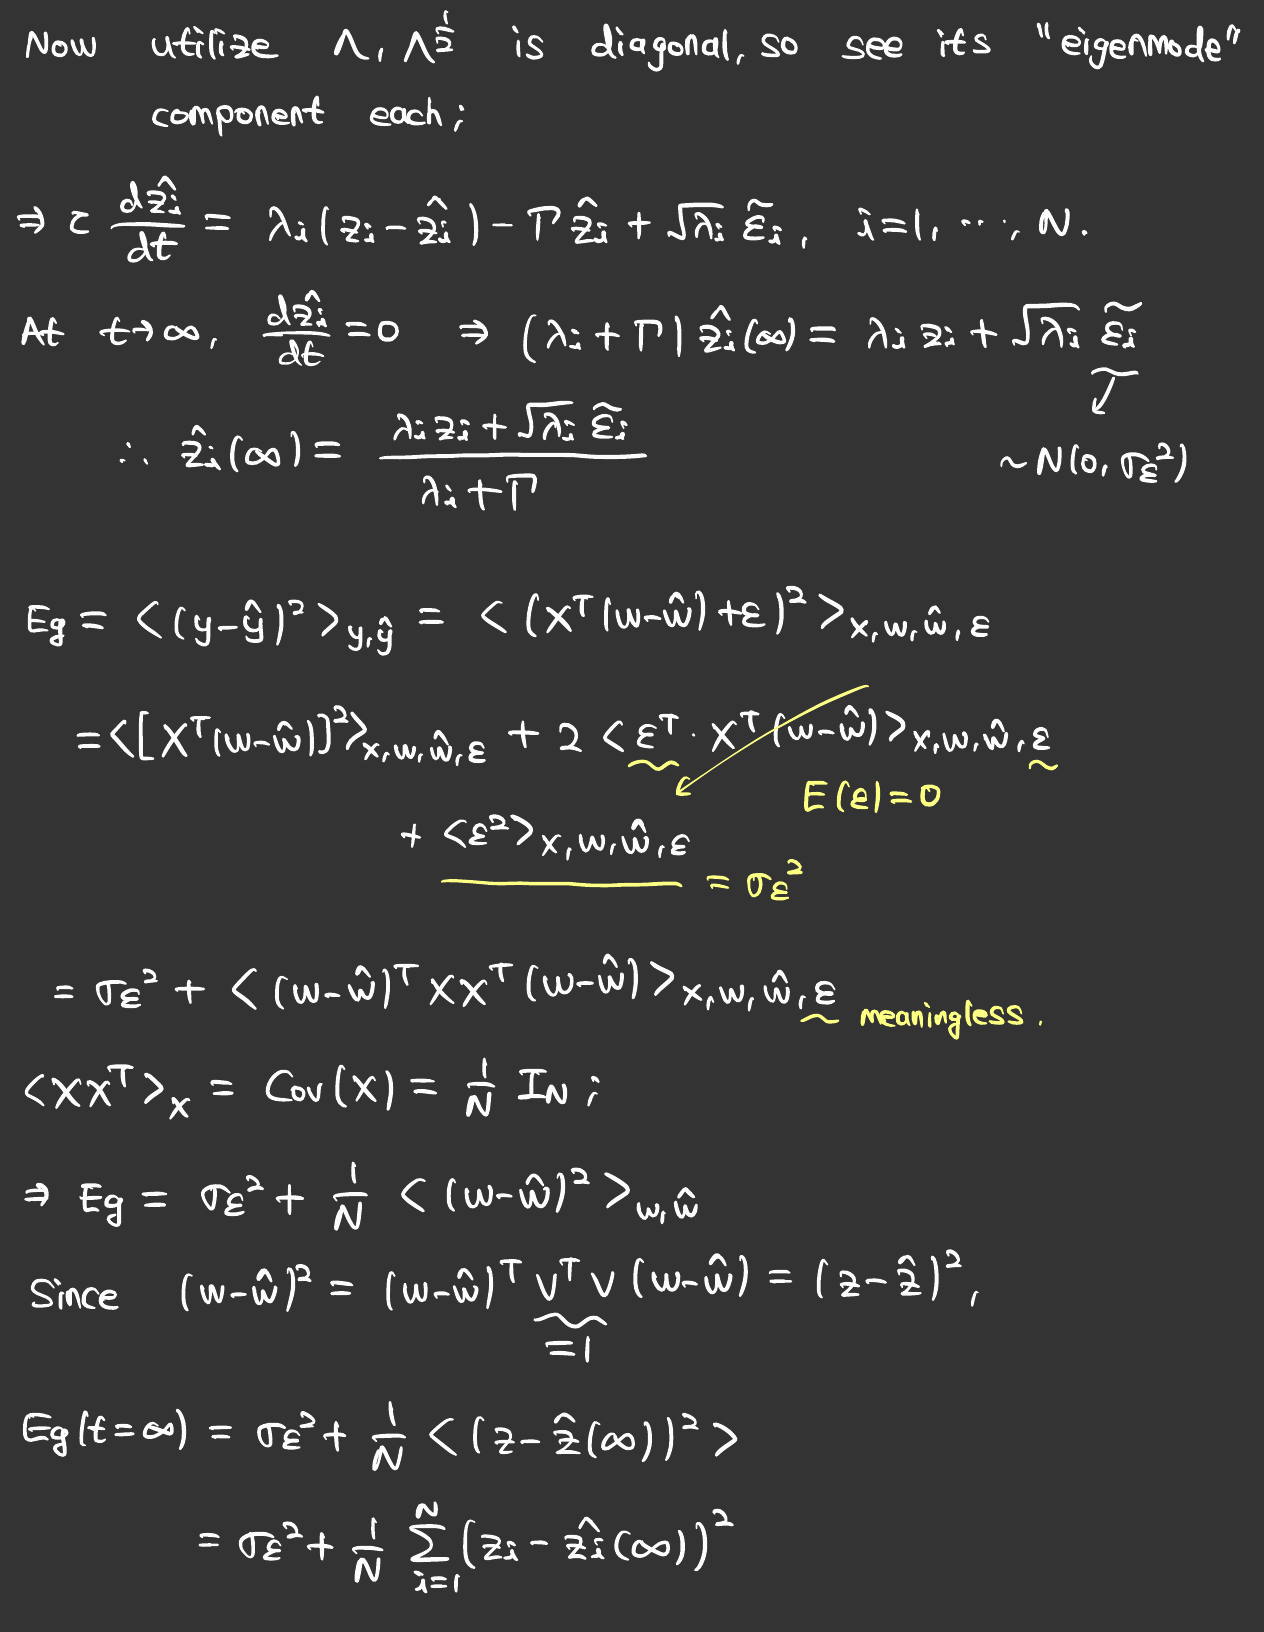 Now utilize Λ, Λ^{1/2} is diagonal, so see its "eigenmode"
component each;
⇒ τ dẑᵢ/dt = λᵢ(zᵢ - ẑᵢ) - Γẑᵢ + √λᵢ ε̃ᵢ, i=1, ⋯, N.
At t→∞, dẑᵢ/dt = 0 ⇒ (λᵢ + Γ) ẑᵢ(∞) = λᵢ zᵢ + √λᵢ ε̃ᵢ
∴ ẑᵢ(∞) = (λᵢ zᵢ + √λᵢ ε̃ᵢ)/(λᵢ + Γ) ~N(0, σ_ε²)
Eg = <(y-ŷ)²>_{y,ŷ} = <(X^T(w-ŵ)+ε)²>_{x,w,ŵ,ε}
= <[X^T(w-ŵ)]²>_{x,w,ŵ,ε} + 2 <ε^T · X^T(w-ŵ)>_{x,w,ŵ,ε}
E(ε)=0
+ <ε²>_{x,w,ŵ,ε} = σ_ε²
= σ_ε² + <(w-ŵ)^T XX^T (w-ŵ)>_{x,w,ŵ,ε} meaningless.
<XX^T>_x = Cov(X) = 1/N I_N ;
⇒ Eg = σ_ε² + 1/N <(w-ŵ)²>_{w,ŵ}
Since (w-ŵ)² = (w-ŵ)^T V^T V (w-ŵ) = (z-ẑ)²,
=1
Eg(t=∞) = σ_ε² + 1/N <(z-ẑ(∞))²>
= σ_ε² + 1/N Σ_{i=1}^{N} (zᵢ - ẑᵢ(∞))²